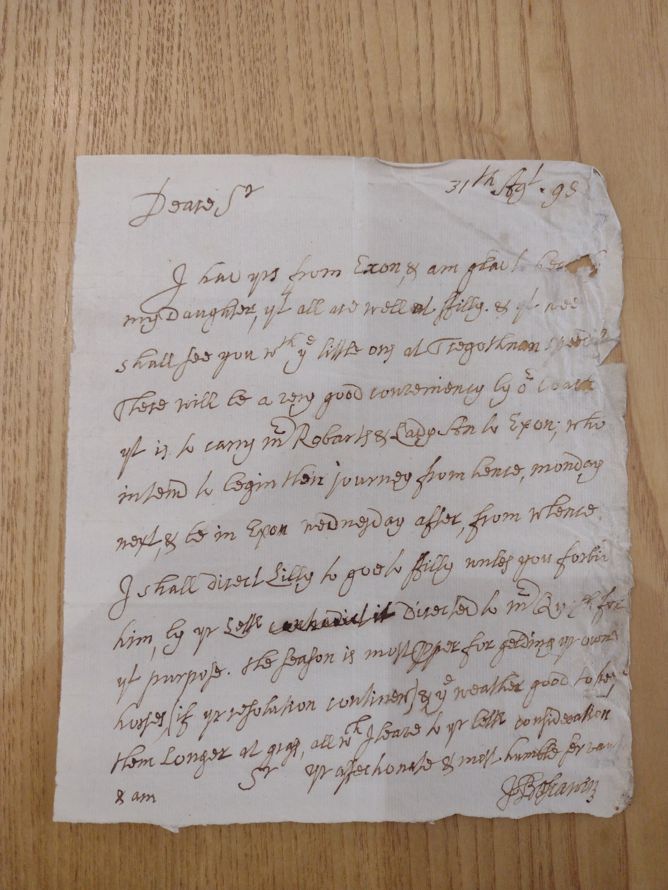 31th Agt. 98
Deare Sr
I have yrs from Exon, & am glad to hear
my Daughter, yt all are well at ffilly. & yt wee
shall see you wth ye little ons at Tregothnan
There will be a very good conveniency by or Coach
yt is to carry mr Robarts & Lady An to Exon; who
intend to begin their journey from hence, monday
next, & be in Exon wednesday after, from whence
I shall direct Lilly to goe to ffilly unles you forbid
him, by yr Lettr directed to mr for
yt purpose. the season is most pper for gelding yr owne
horses (if yr resolution continues) & ye weather good to kee
them Longer at grass, all wch I leave to yr better consideration
& am Sr yr affectionate & most humble servant
JBoscawen